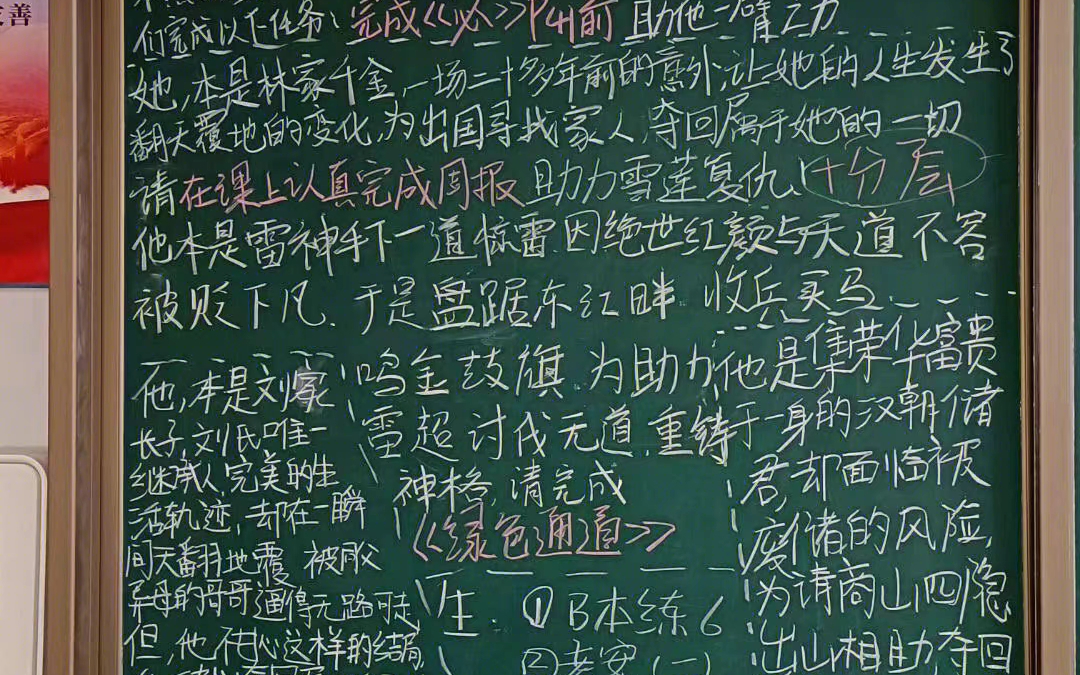 善
们完成以下任务:完成《必》P41前 助他一臂之力
她,本是林家千金,一场二十多年前的意外,让她的人生发生了
翻天覆地的变化,为出国寻找家人,夺回属于她的一切
请在课上认真完成周报 助力雪莲复仇! 十分层
他本是雷神手下一道惊雷.因绝世红颜与天道不容
被贬下凡.于是盘踞东江畔.收兵买马.
鸣金鼓旗.为助力
雷超讨伐无道.重铸
神格,请完成
《绿色通道》
他,本是刘家
长子,刘氏唯一
继承人,完美的生
活轨迹,却在一瞬
间天翻地覆,被同父
异母的哥哥逼得无路可走
但,他不甘心这样的结局,
生.①B本练6
②老安(一)
他是集荣华富贵
于一身的汉朝储
君,却面临被
废储的风险,
为请商山四隐
出山相助,夺回